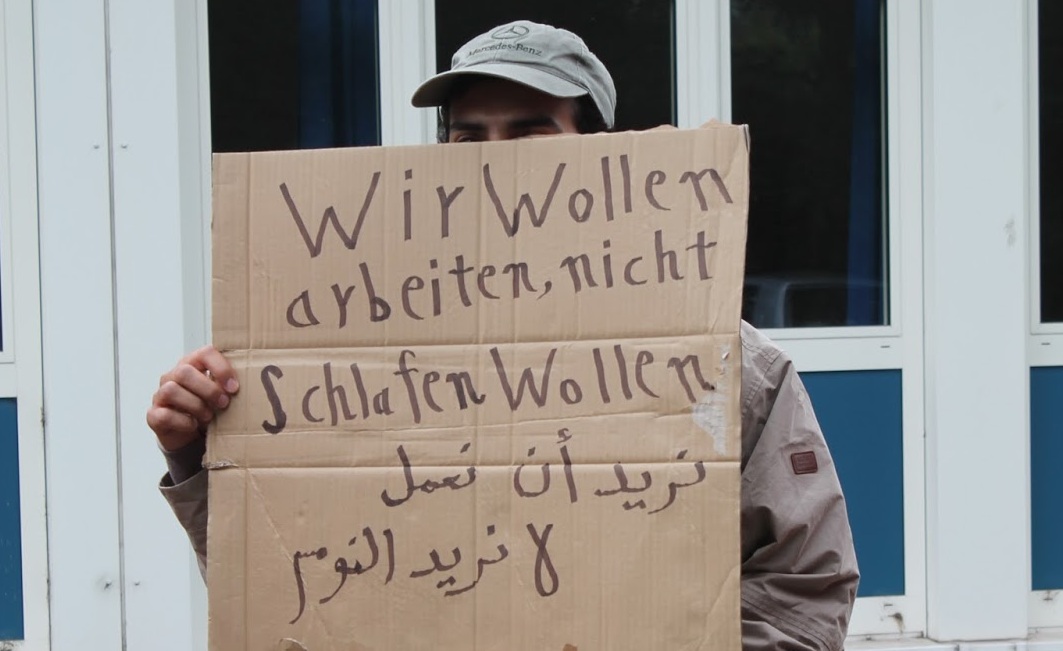 Mercedes-Benz
Wir Wollen
arbeiten, nicht
Schlafen Wollen
نريد أن نعمل
لا نريد النوم